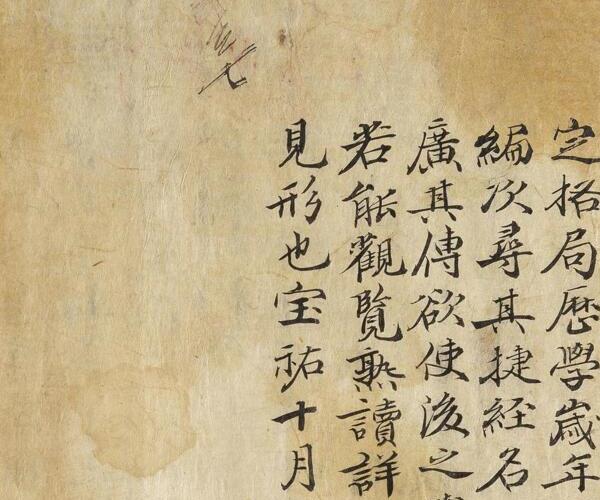 定格局歴學歳年
編次尋其捷経名
廣其傳欲使後之
若能觀覽熟讀詳
見形也宝祐十月